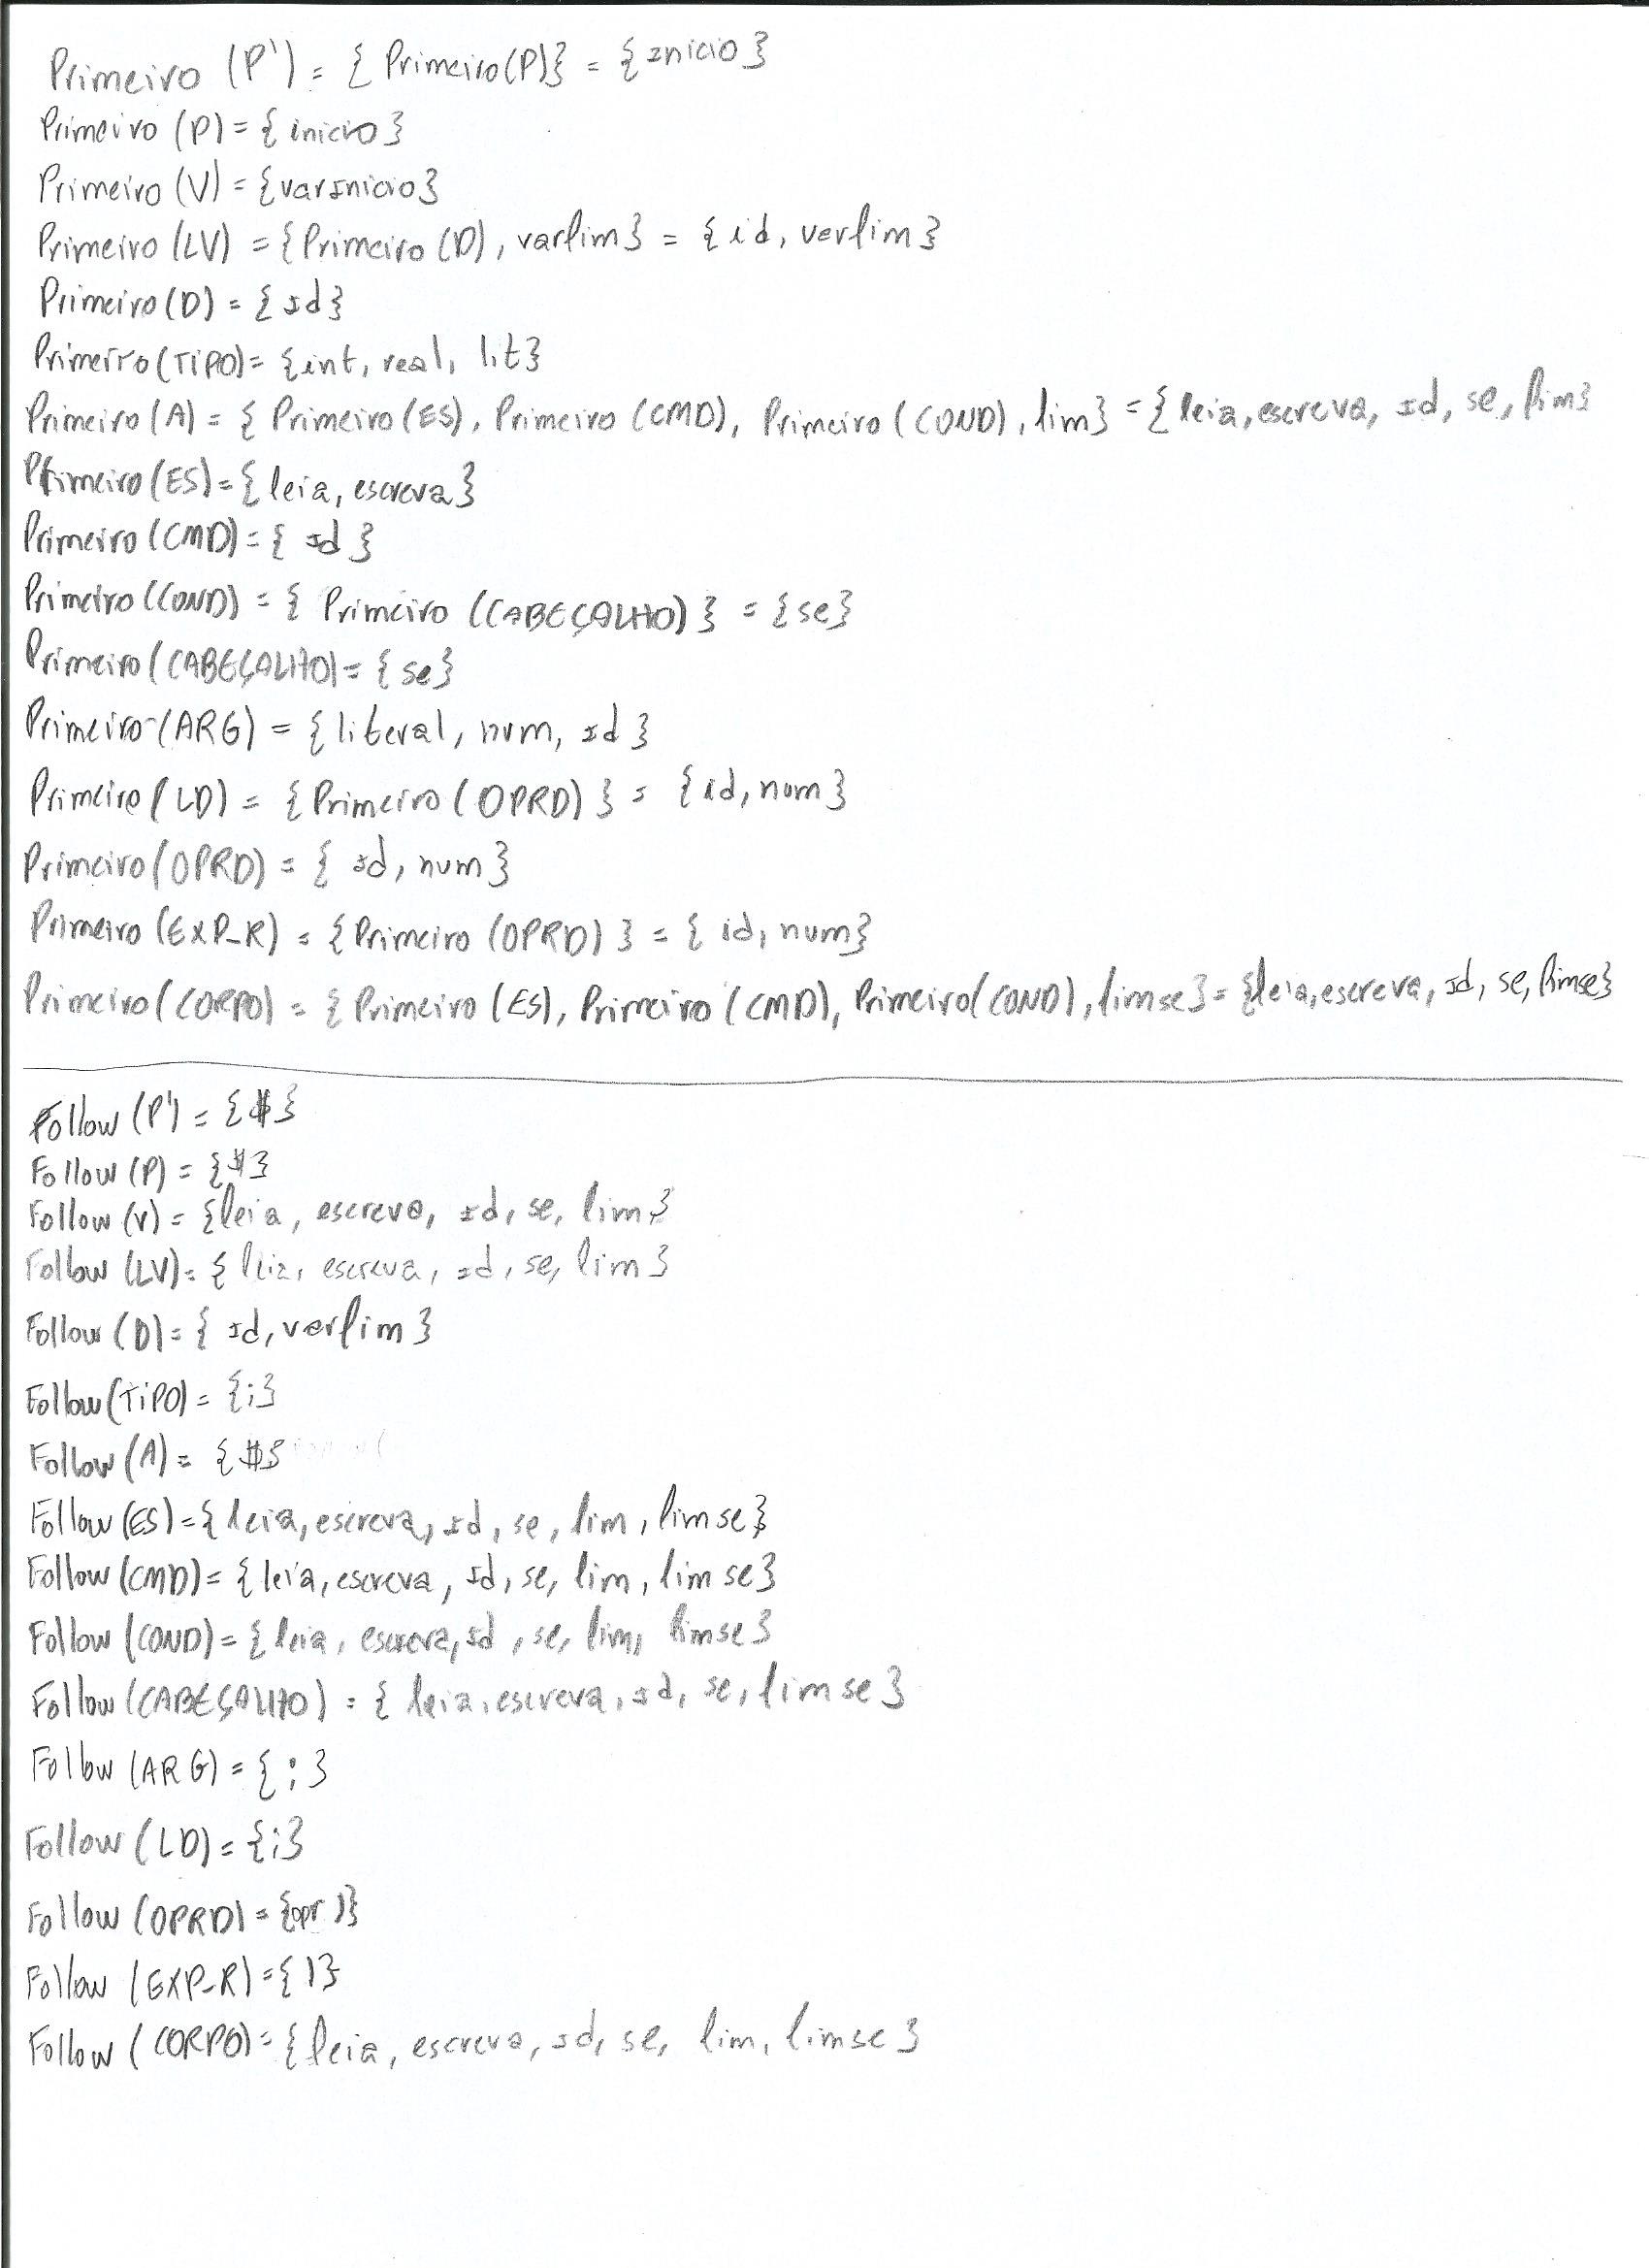 Primeiro (P') = { Primeiro(P)} = {Inicio}
Primeiro (P) = {inicio}
Primeiro (V) = {varInicio}
Primeiro (LV) = {Primeiro (D), varfim} = {id, verfim}
Primeiro (D) = {Id}
Primeiro (TiPO) = {int, real, lit}
Primeiro (A) = { Primeiro (ES), Primeiro (CMD), Primeiro (COND), fim} = {leia, escreva, Id, se, fim}
Primeiro (ES) = {leia, escreva}
Primeiro (CMD) = { Id }
Primeiro (COND) = { Primeiro (CABEÇALHO) } = {se}
Primeiro (CABEÇALHO) = {se}
Primeiro (ARG) = {literal, num, Id}
Primeiro (LD) = {Primeiro (OPRD) } = {id, num}
Primeiro (OPRD) = { Id, num}
Primeiro (EXP_R) = {Primeiro (OPRD) } = { id, num}
Primeiro (CORPO) = { Primeiro (ES), Primeiro (CMD), Primeiro (COND), fimse} = {leia, escreva, Id, se, fimse}
Follow (P') = {$}
Follow (P) = {$}
Follow (V) = {leia, escreva, Id, se, fim}
Follow (LV) = {leia, escreva, Id, se, fim}
Follow (D) = { Id, verfim }
Follow (TiPO) = {;}
Follow (A) = {$}
Follow (ES) = {leia, escreva, Id, se, fim, fimse}
Follow (CMD) = {leia, escreva, Id, se, fim, fimse}
Follow (COND) = {leia, escreva, Id, se, fim, fimse}
Follow (CABEÇALHO) = { leia, escreva, Id, se, fimse }
Follow (ARG) = { ; }
Follow (LD) = {;}
Follow (OPRD) = {opr )}
Follow (EXP_R) = { )}
Follow (CORPO) = {leia, escreva, Id, se, fim, fimse }